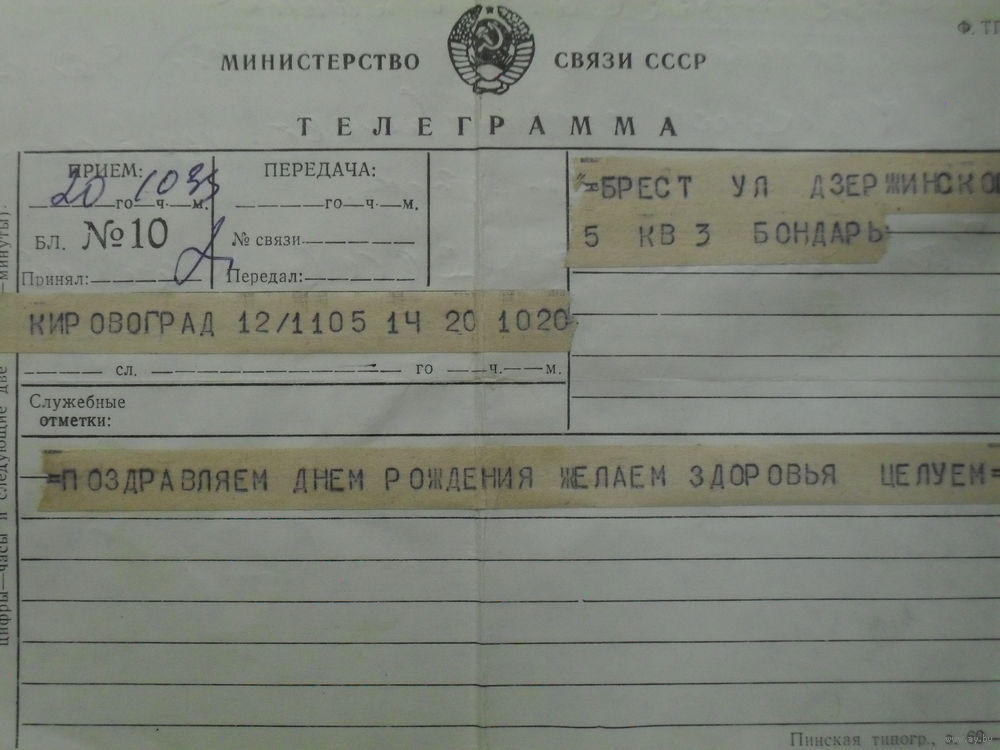 Ф. ТГ
МИНИСТЕРСТВО СВЯЗИ СССР
ТЕЛЕГРАММА
ПРИЕМ:
20 10 35
го ч. м.
БЛ. №10
Принял:
ПЕРЕДАЧА:
го ч. м.
№ связи
Передал:
=БРЕСТ УЛ ДЗЕРЖИНСКО
5 КВ 3 БОНДАРЬ
КИРОВОГРАД 12/1105 14 20 1020=
сл. го ч. м.
Служебные
отметки:
=ПОЗДРАВЛЯЕМ ДНЕМ РОЖДЕНИЯ ЖЕЛАЕМ ЗДОРОВЬЯ ЦЕЛУЕМ=
цифры—часы и следующие две —минуты).
Пинская типогр.,
www.ay.by